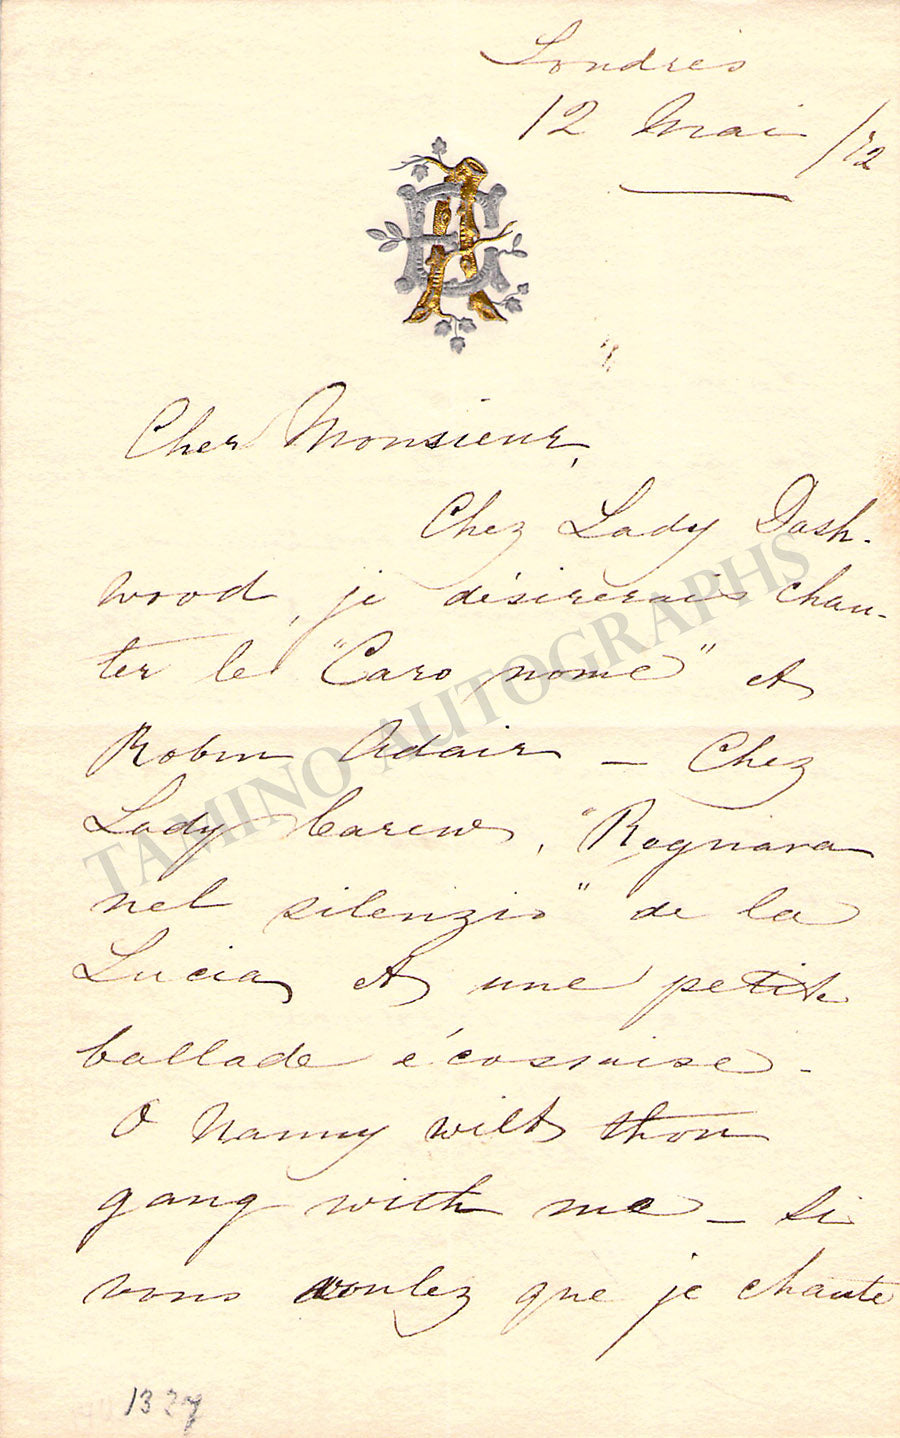 Londres
12 Mai /72
Cher Monsieur,
Chez Lady Dash-
wood, je désirerais chan-
ter le "Caro nome" et
Robin Adair — Chez
Lady Carew, "Regnava
nel silenzio" de la
Lucia, et une petite
ballade écossaise -
O Nanny wilt thou
gang with me — Si
vous voulez que je chante
1327
TAMINO AUTOGRAPHS